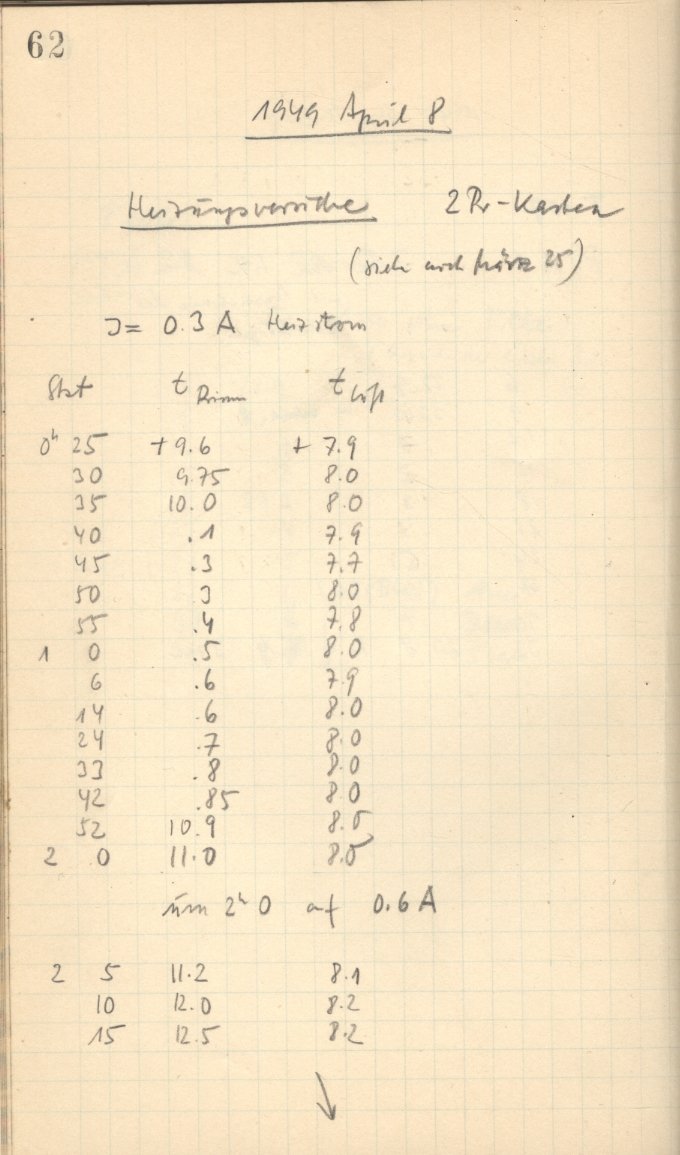 62
1949 April 8
Heizungsversuche 2 Pr-Kasten
(siehe auch März 25)
J = 0.3 A Heizstrom
t Prism t Luft
0h 25 +9.6 + 7.9
30 9.75 8.0
35 10.0 8.0
40 .1 7.9
45 .3 7.7
50 .3 8.0
55 .4 7.8
1 0 .5 8.0
6 .6 7.9
14 .6 8.0
24 .7 8.0
33 .8 8.0
42 .85 8.0
52 10.9 8.0
2 0 11.0 8.0
um 2h 0 auf 0.6 A
2 5 11.2 8.1
10 12.0 8.2
15 12.5 8.2